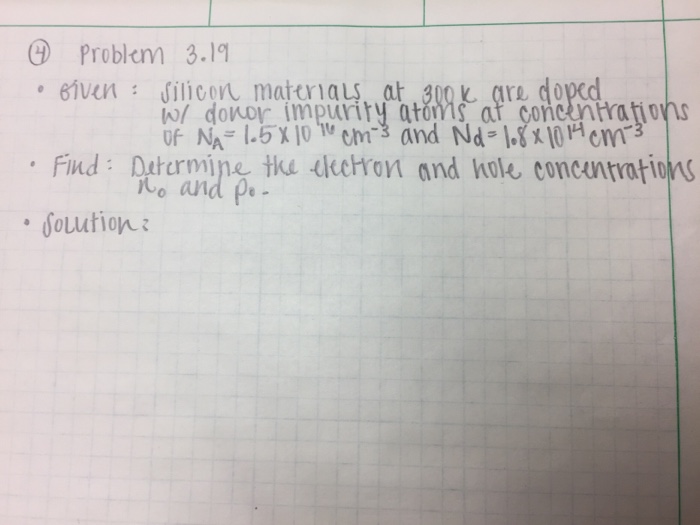 ④ Problem 3.19
• Given : Silicon materials at 300K are doped
w/ donor impurity atoms at concentrations
of NA = 1.5 x 10¹⁶ cm⁻³ and Nd = 1.8 x 10¹⁴ cm⁻³
• Find : Determine the electron and hole concentrations
n₀ and p₀.
• Solution :